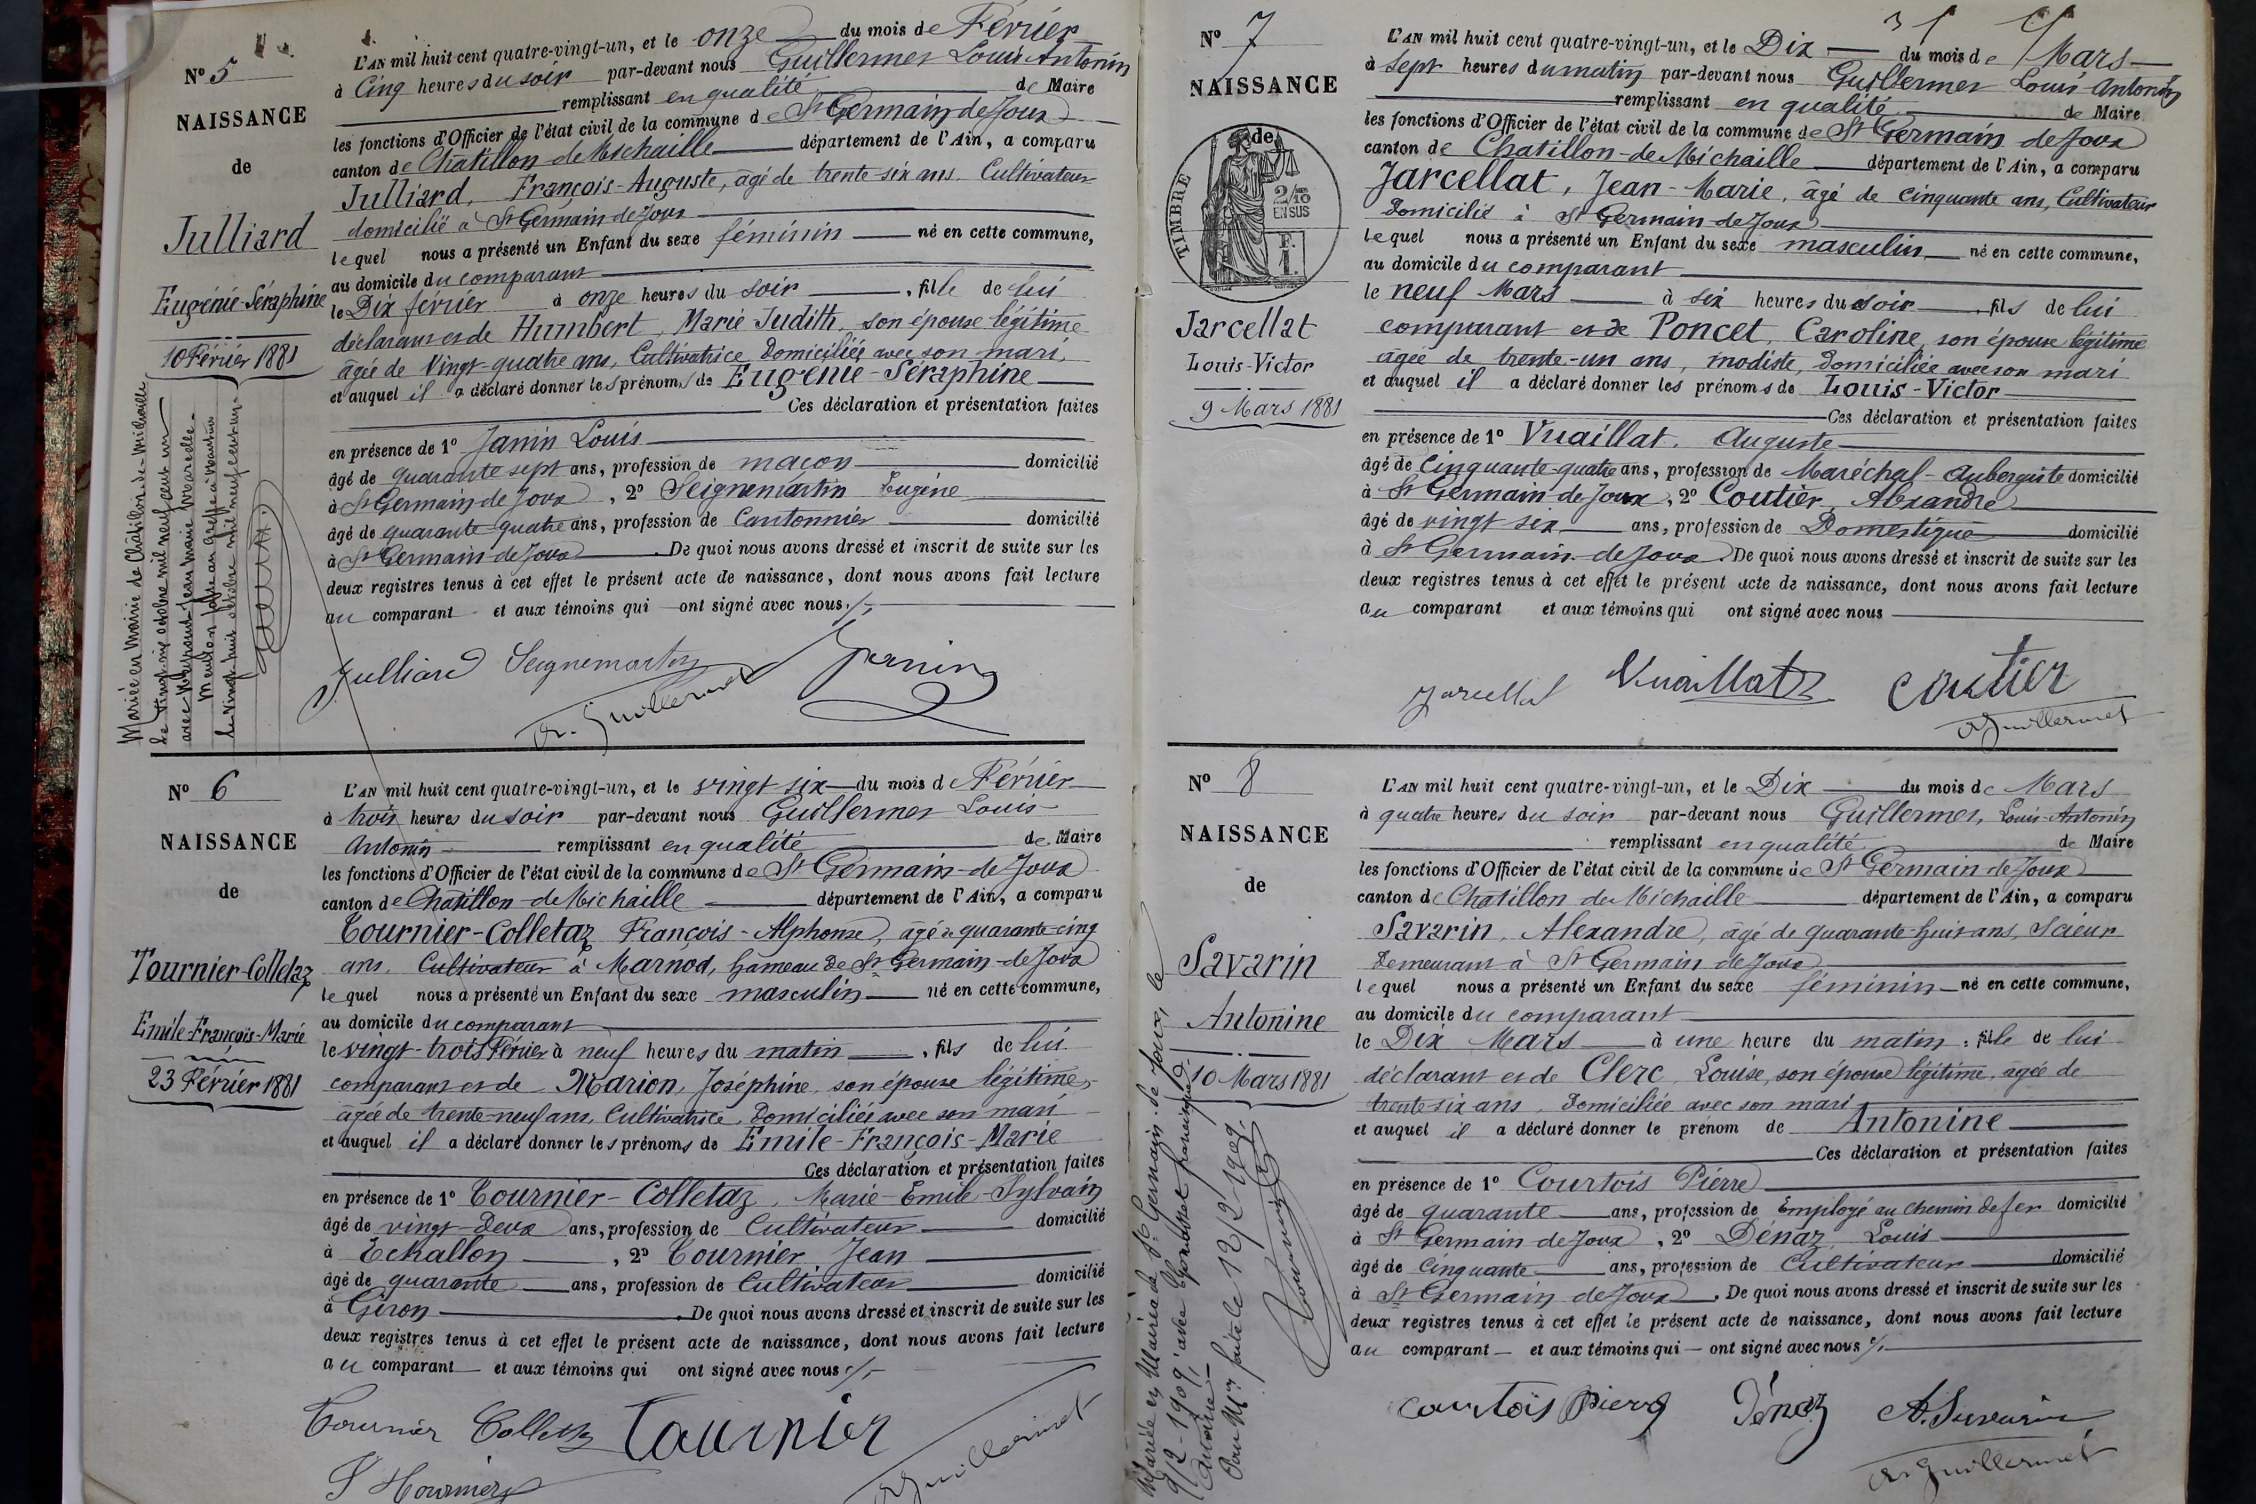 N° 5
NAISSANCE
de
Julliard
Eugénie-Séraphine
10 Février 1881
Mariée en Mairie de Châtillon-de-Michaille
le vingt-six octobre mil neuf cent un
avec Jean Marie Marcelle
Mention faite au greffe à Nantua
le vingt huit octobre mil neuf cent un
L'AN mil huit cent quatre-vingt-un, et le onze du mois de Février
à Cinq heures du soir par-devant nous Guillermet Louis Antonin
remplissant en qualité de Maire
les fonctions d'Officier de l'état civil de la commune de St Germain de Joux
canton de Châtillon de Michaille département de l'Ain, a comparu
Julliard, François-Auguste, âgé de trente-six ans Cultivateur
domicilié à St Germain de Joux
lequel nous a présenté un Enfant du sexe féminin né en cette commune,
au domicile du comparant
le Dix février à onze heures du soir, fille de lui
déclarant et de Humbert, Marie Judith, son épouse légitime
âgée de Vingt-quatre ans, Cultivatrice, Domiciliée avec son mari,
et auquel il a déclaré donner les prénoms de Eugénie-Séraphine
Ces déclaration et présentation faites
en présence de 1° Janin Louis
âgé de quarante sept ans, profession de maçon domicilié
à St Germain de Joux, 2° Seignemartin Eugène
âgé de quarante-quatre ans, profession de Cantonnier domicilié
à St Germain de Joux. De quoi nous avons dressé et inscrit de suite sur les
deux registres tenus à cet effet le présent acte de naissance, dont nous avons fait lecture
au comparant et aux témoins qui ont signé avec nous./.
Julliard Seignemartin Janin
A. Guillermet
N° 6
NAISSANCE
de
Tournier-Colletaz
Emile-François-Marie
23 Février 1881
L'AN mil huit cent quatre-vingt-un, et le vingt-six du mois de Février
à trois heures du soir par-devant nous Guillermet Louis
Antonin remplissant en qualité de Maire
les fonctions d'Officier de l'état civil de la commune de St Germain-de-Joux
canton de Châtillon-de-Michaille département de l'Ain, a comparu
Tournier-Colletaz François-Alphonse, âgé de quarante-cinq
ans, Cultivateur à Marnod, hameau de St Germain-de-Joux
lequel nous a présenté un Enfant du sexe masculin né en cette commune,
au domicile du comparant
le vingt-trois Février à neuf heures du matin, fils de lui
comparant et de Marion, Joséphine, son épouse légitime,
âgée de trente-neuf ans, Cultivatrice, Domiciliée avec son mari
et auquel il a déclaré donner les prénoms de Emile-François-Marie
Ces déclaration et présentation faites
en présence de 1° Tournier-Colletaz, Marie-Emile-Sylvain
âgé de vingt-Deux ans, profession de Cultivateur domicilié
à Echallon, 2° Tournier Jean
âgé de quarante ans, profession de Cultivateur domicilié
à Giron. De quoi nous avons dressé et inscrit de suite sur les
deux registres tenus à cet effet le présent acte de naissance, dont nous avons fait lecture
au comparant et aux témoins qui ont signé avec nous./.
Tournier Colletaz Tournier
Tournier
A. Guillermet
N° 7
NAISSANCE
de
TIMBRE
2/10
EN SUS
F.
1.
Jarcellat
Louis-Victor
9 Mars 1881
L'AN mil huit cent quatre-vingt-un, et le Dix du mois de Mars
à sept heures du matin par-devant nous Guillermet Louis Antonin
remplissant en qualité de Maire
les fonctions d'Officier de l'état civil de la commune de St Germain de Joux
canton de Chatillon-de-Michaille département de l'Ain, a comparu
Jarcellat, Jean-Marie, âgé de cinquante ans, Cultivateur
Domicilié à St Germain-de-Joux
lequel nous a présenté un Enfant du sexe masculin né en cette commune,
au domicile du comparant
le neuf Mars à six heures du soir, fils de lui
comparant et de Poncet, Caroline, son épouse légitime
âgée de trente-un ans, modiste, Domiciliée avec son mari
et auquel il a déclaré donner les prénoms de Louis-Victor
Ces déclaration et présentation faites
en présence de 1° Vuaillat, Auguste
âgé de Cinquante-quatre ans, profession de Maréchal-Aubergiste domicilié
à St Germain-de-Joux, 2° Coutier, Alexandre
âgé de vingt six ans, profession de Domestique domicilié
à St Germain-de-Joux. De quoi nous avons dressé et inscrit de suite sur les
deux registres tenus à cet effet le présent acte de naissance, dont nous avons fait lecture
au comparant et aux témoins qui ont signé avec nous
Jarcellat Vuaillat Coutier
A. Guillermet
N° 8
NAISSANCE
de
Savarin
Antonine
10 Mars 1881
Mariée en Mairie de St Germain de Joux, le
9/2-1909, avec
Antoine
Pour Mon faite le 12/2-1909.
L'AN mil huit cent quatre-vingt-un, et le Dix du mois de Mars
à quatre heures du soir par-devant nous Guillermet, Louis-Antonin
remplissant en qualité de Maire
les fonctions d'Officier de l'état civil de la commune de St Germain de Joux
canton de Chatillon de Michaille département de l'Ain, a comparu
Savarin, Alexandre, âgé de quarante-huit ans, Scieur
Demeurant à St Germain de Joux
lequel nous a présenté un Enfant du sexe féminin né en cette commune,
au domicile du comparant
le Dix Mars à une heure du matin, fille de lui
déclarant et de Clerc, Louise, son épouse légitime, âgée de
trente-six ans, Domiciliée avec son mari
et auquel il a déclaré donner le prénom de Antonine
Ces déclaration et présentation faites
en présence de 1° Courtois Pierre
âgé de quarante ans, profession de Employé au chemin de fer domicilié
à St Germain de Joux, 2° Dénaz Louis
âgé de Cinquante ans, profession de Cultivateur domicilié
à St Germain de Joux. De quoi nous avons dressé et inscrit de suite sur les
deux registres tenus à cet effet le présent acte de naissance, dont nous avons fait lecture
au comparant et aux témoins qui ont signé avec nous ./.
Courtois Pierre Dénaz A. Savarin
A. Guillermet